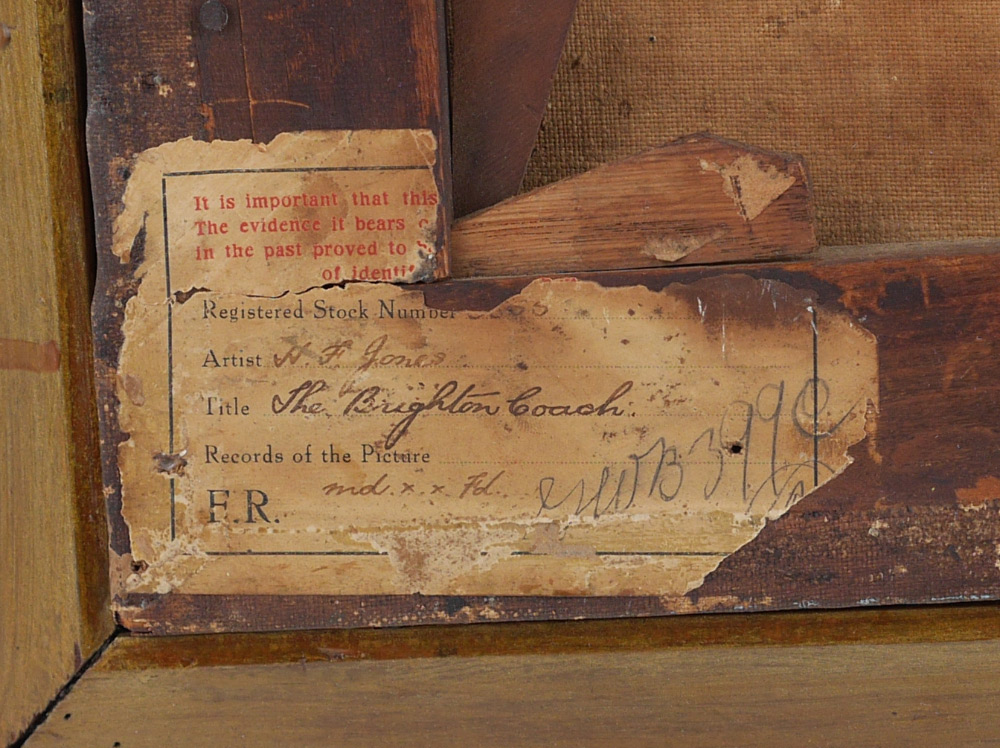 It is important that this
The evidence it bears
in the past proved to
of identi
Registered Stock Number
Artist H. F. Jones
Title The Brighton Coach.
Records of the Picture
md. x x Fd.
F.R.